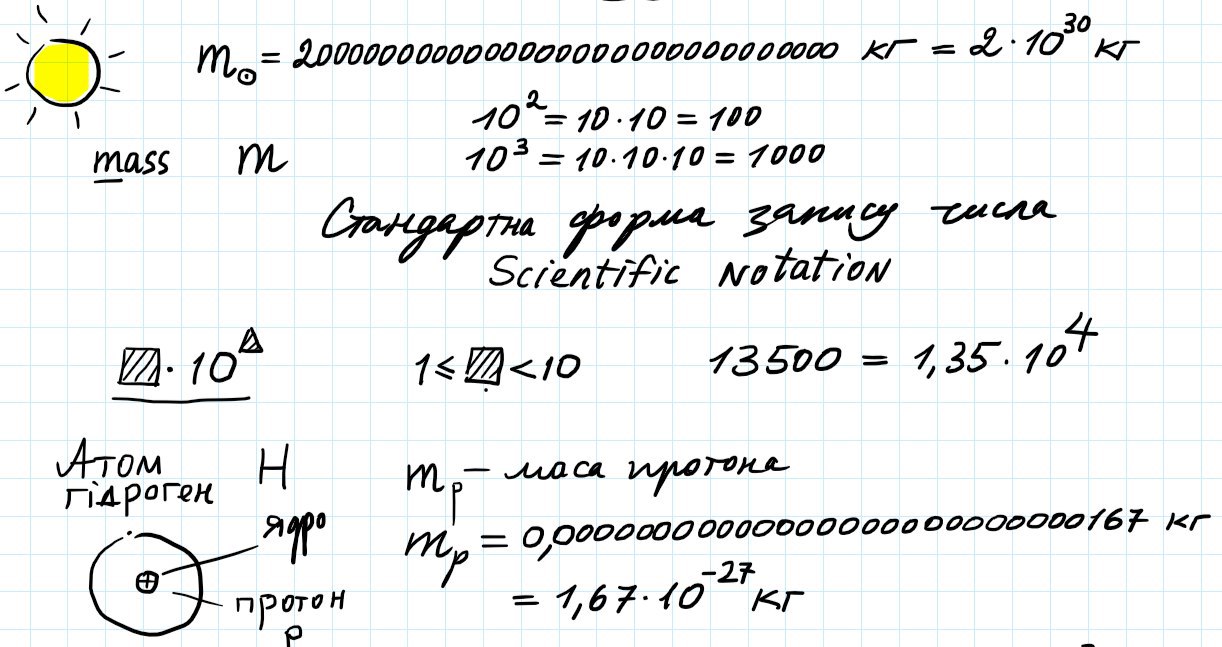 m☉ = 2000000000000000000000000000000 кг = 2 · 10³⁰ кг
10² = 10 · 10 = 100
mass m 10³ = 10 · 10 · 10 = 1000
Стандартна форма запису числа
Scientific Notation
▨ · 10^△ 1 ≤ ▨ < 10 13500 = 1,35 · 10⁴
Атом H mₚ – маса протона
гідроген
ядро mₚ = 0,00000000000000000000000000167 кг
= 1,67 · 10⁻²⁷ кг
протон
p